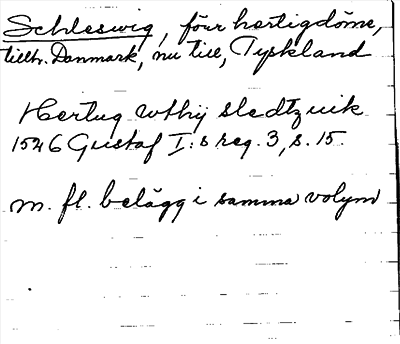 Schleswig, förr hertigdöme,
tillh. Danmark, nu till, Tyskland
Hertug wthij sledtzuik
1546 Gustaf I:s reg. 3, s. 15.
m. fl. belägg i samma volym